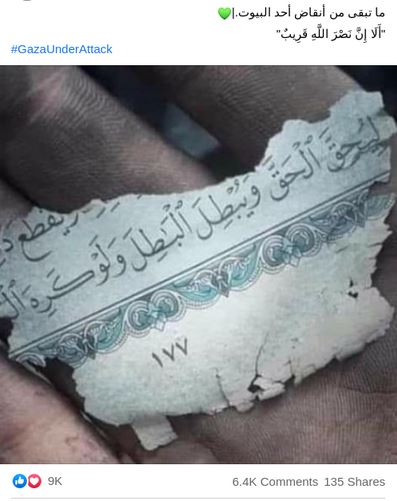 ما تبقى من أنقاض أحد البيوت.|💚
"أَلَا إِنَّ نَصْرَ اللَّهِ قَرِيبٌ"
#GazaUnderAttack
يَقْطَعَ دَ
لِيُحِقَّ ٱلْحَقَّ وَيُبْطِلَ ٱلْبَٰطِلَ وَلَوْ كَرِهَ ٱلْ
١٧٧
9K
6.4K Comments 135 Shares